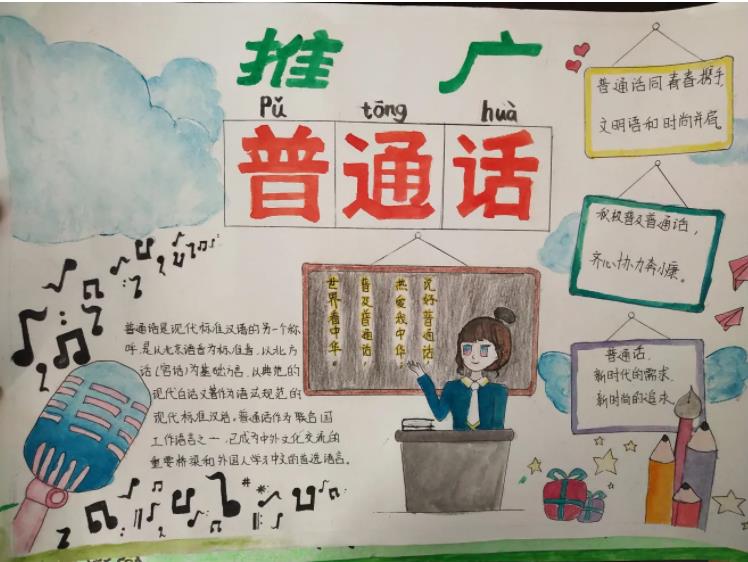 推广
Pǔ tōng huà
普通话
普通话同青春携手,
文明语和时尚并肩。
积极普及普通话,
齐心协力奔小康。
普通话,
新时代的需求,
新时尚的追求。
说好普通话
热爱我中华。
普及普通话,
世界看中华。
普通话是现代标准汉语的另一个称
呼,是以北京语音为标准音,以北方
话(官话)为基础方言,以典范的
现代白话文著作为语法规范的
现代标准汉语。普通话作为联合国
工作语言之一,已成为中外文化交流的
重要桥梁和外国人学习中文的首选语言。